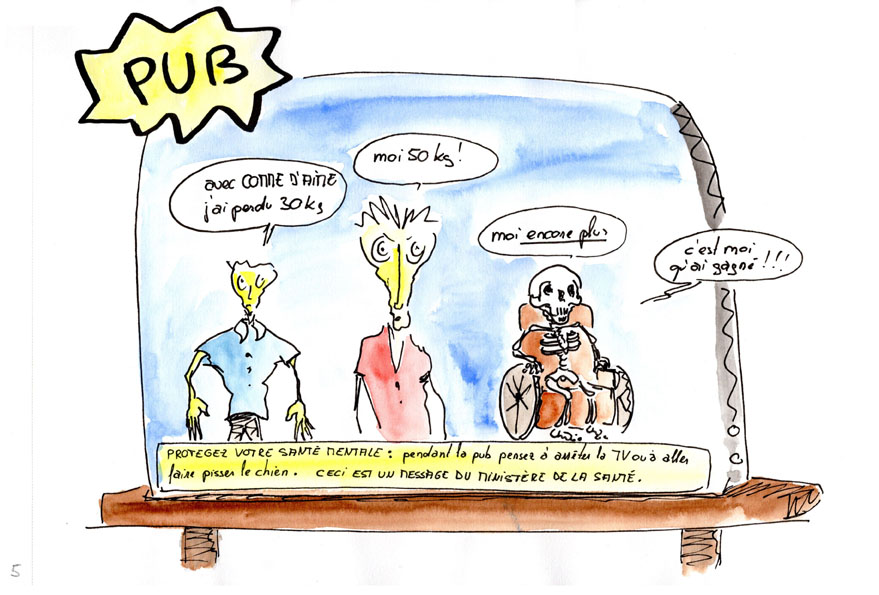 PUB
avec COMME J'AIME
j'ai perdu 30 kg
moi 50 kg !
moi encore plus
c'est moi
qu'ai gagné !!!
PROTEGEZ VOTRE SANTÉ MENTALE : pendant la pub penser à arrêter la TV ou à aller
faire pisser le chien. CECI EST UN MESSAGE DU MINISTÈRE DE LA SANTÉ.
5